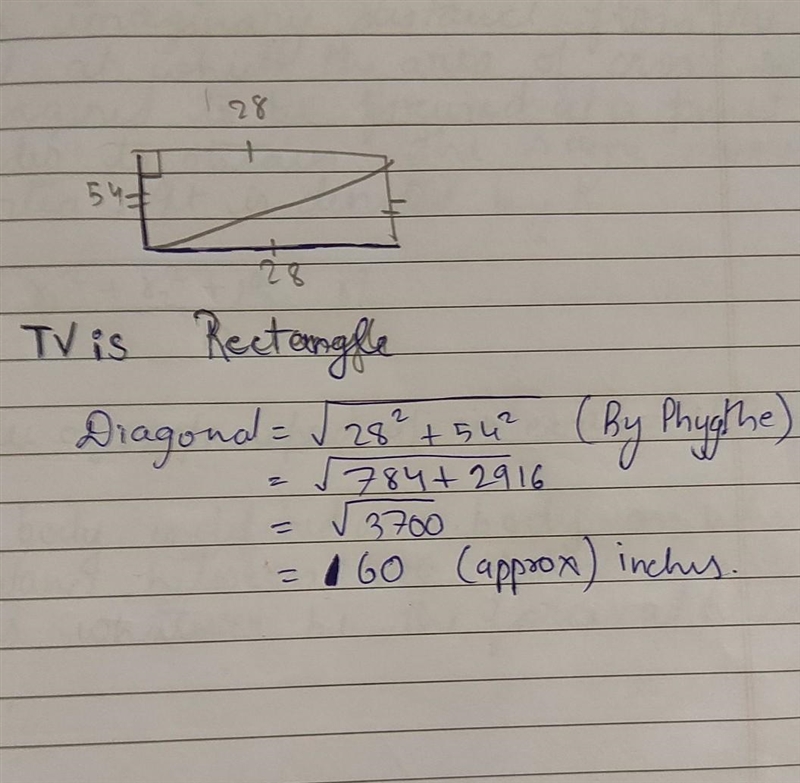 28
54
28
TV is Rectangle
Diagonal = √28² + 54² (By Phygthe)
= √784 + 2916
= √3700
= 60 (approx) inches.